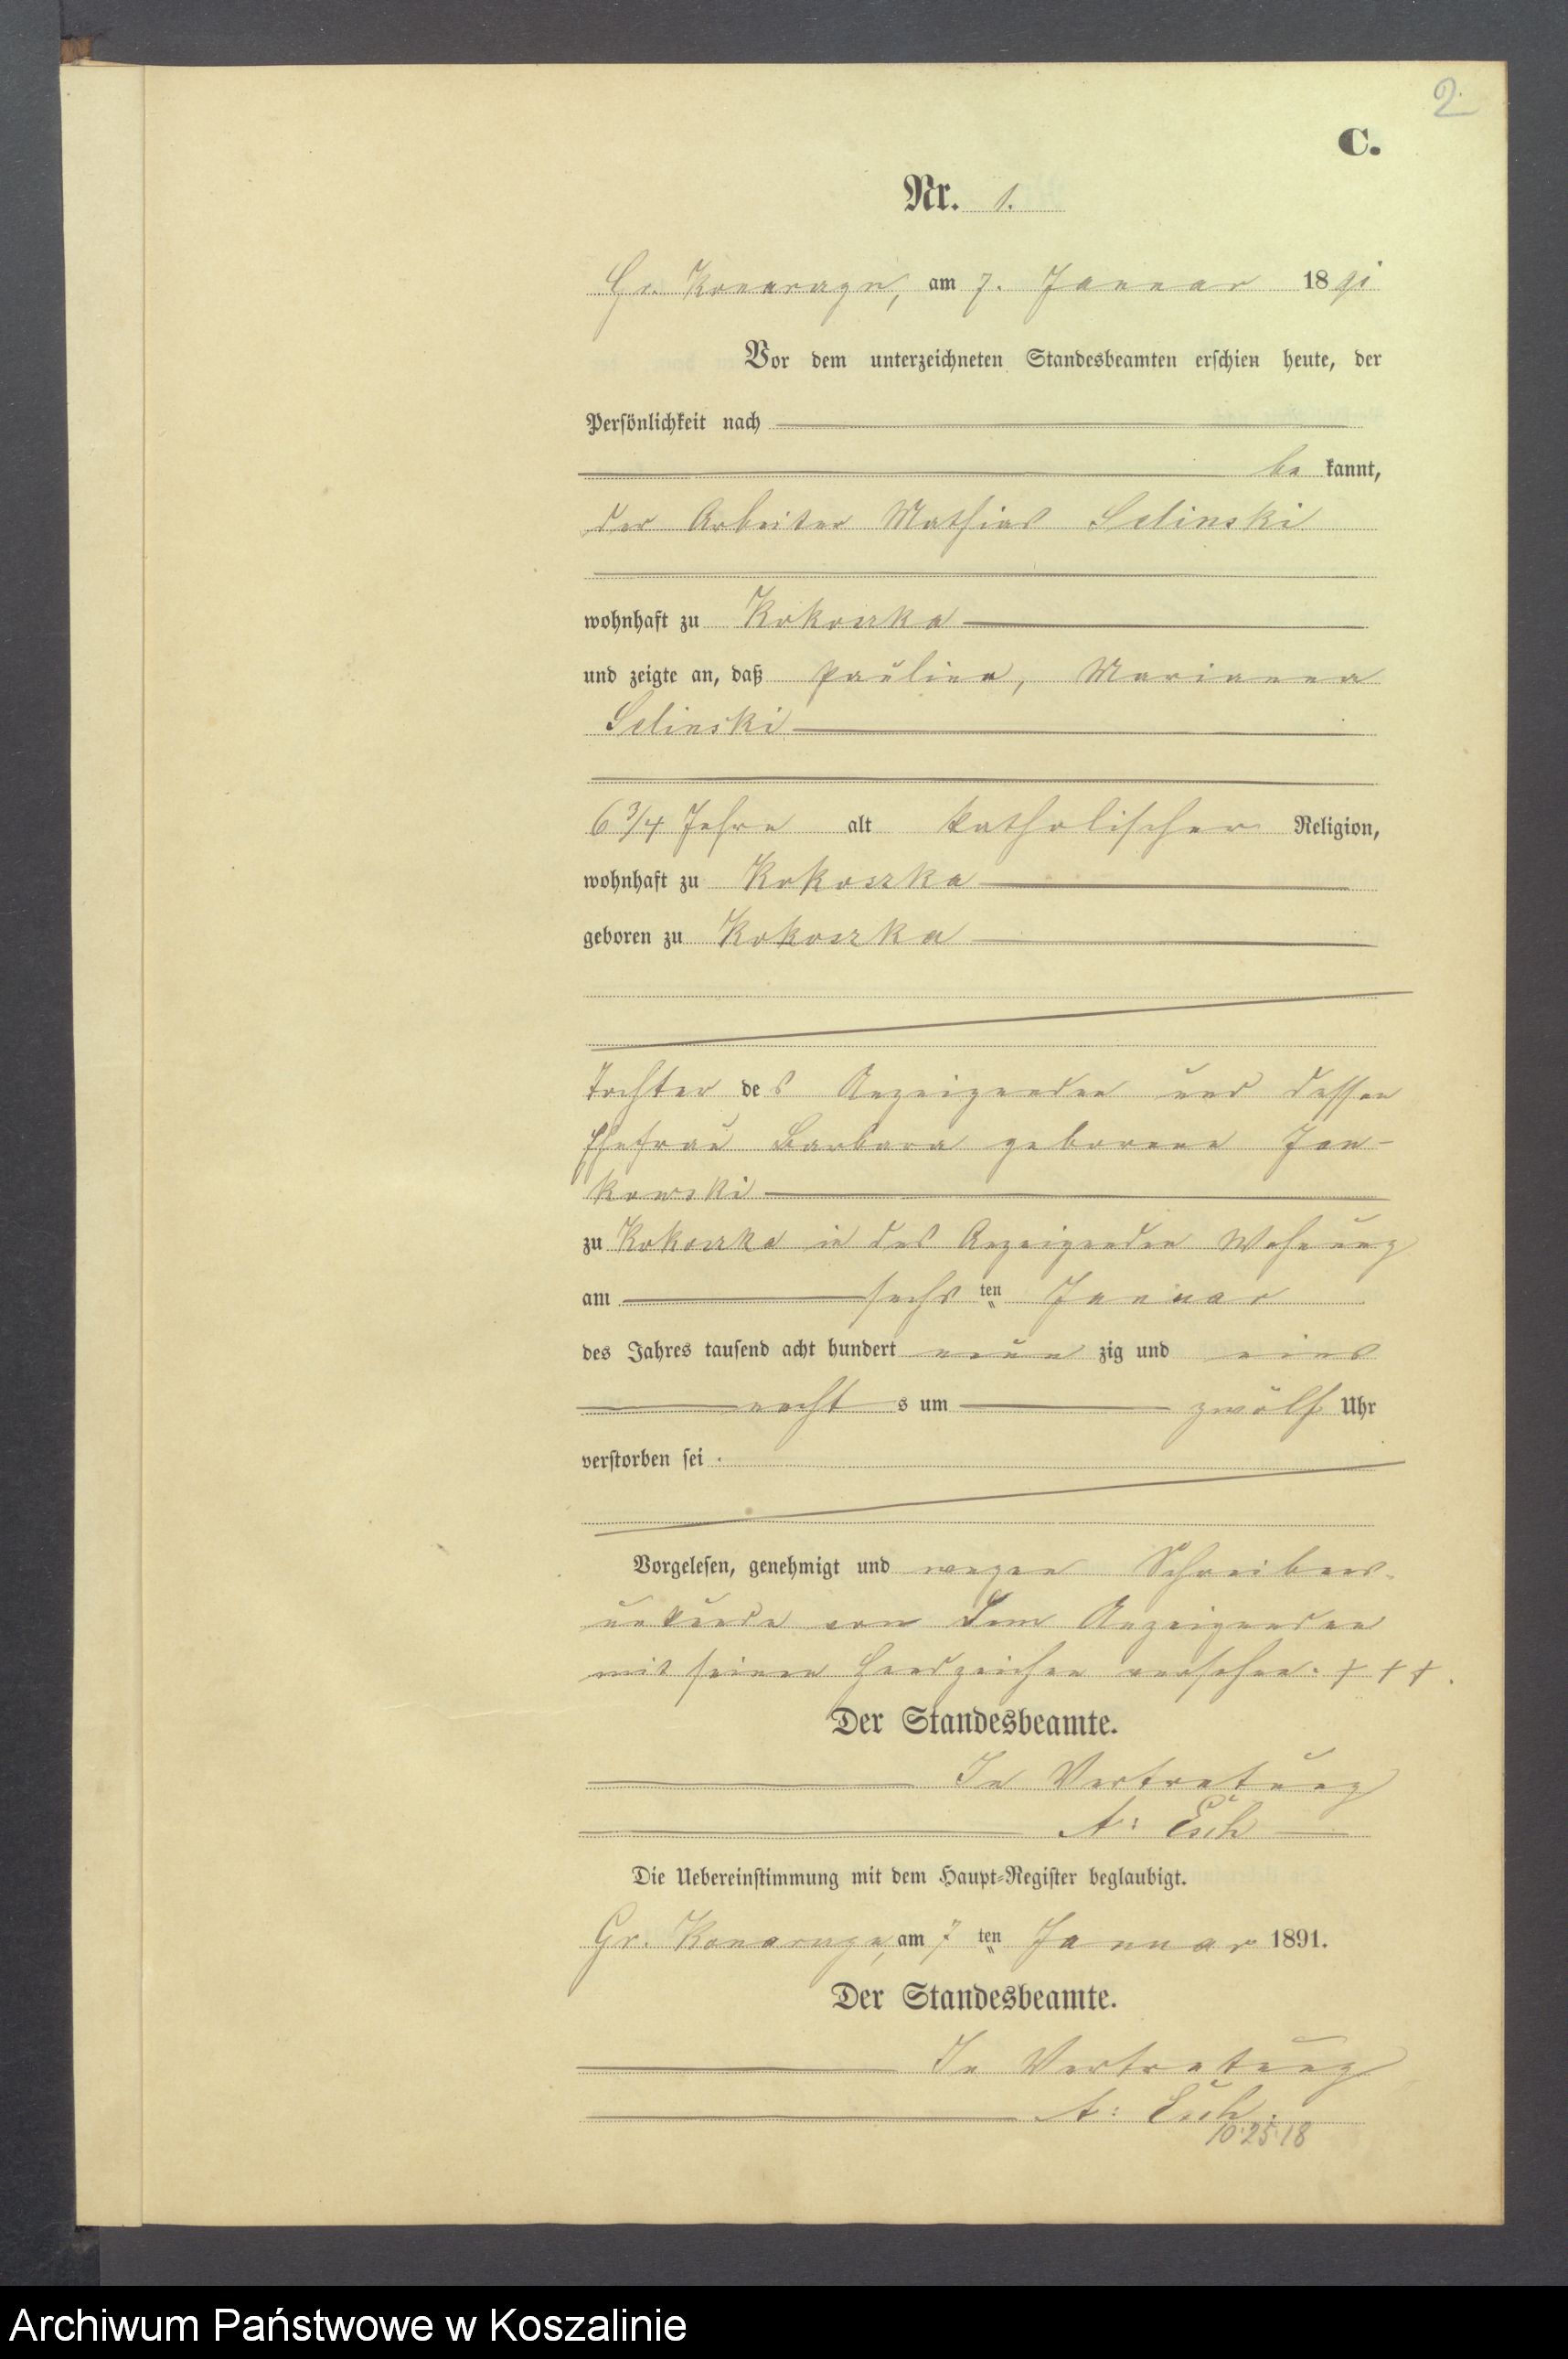 2.
C.
Nr. 1.
Gr. Konarzyn, am 7. Januar 1891
Vor dem unterzeichneten Standesbeamten erschien heute, der
Persönlichkeit nach
be kannt,
der Arbeiter Mathias Selinski
wohnhaft zu Kokoszka
und zeigte an, daß Paulina, Marianna
Selinski
6 3/4 Jahre alt katholischer Religion,
wohnhaft zu Kokoszka
geboren zu Kokoszka
Tochter des Anzeigenden und dessen
Ehefrau Barbara geborene Jan-
kowski
zu Kokoszka in des Anzeigenden Wohnung
am sechs ten Januar
des Jahres tausend acht hundert neun zig und eins
nacht s um zwölf Uhr
verstorben sei.
Vorgelesen, genehmigt und wegen Schreibens-
unkunde von dem Anzeigenden
mit seinen Handzeichen versehen. + + +.
Der Standesbeamte.
In Vertretung
A: Esch
Die Uebereinstimmung mit dem Haupt-Register beglaubigt.
Gr. Konarzyn, am 7 ten Januar 1891.
Der Standesbeamte.
In Vertretung
A: Esch.
10.25.18
Archiwum Państwowe w Koszalinie